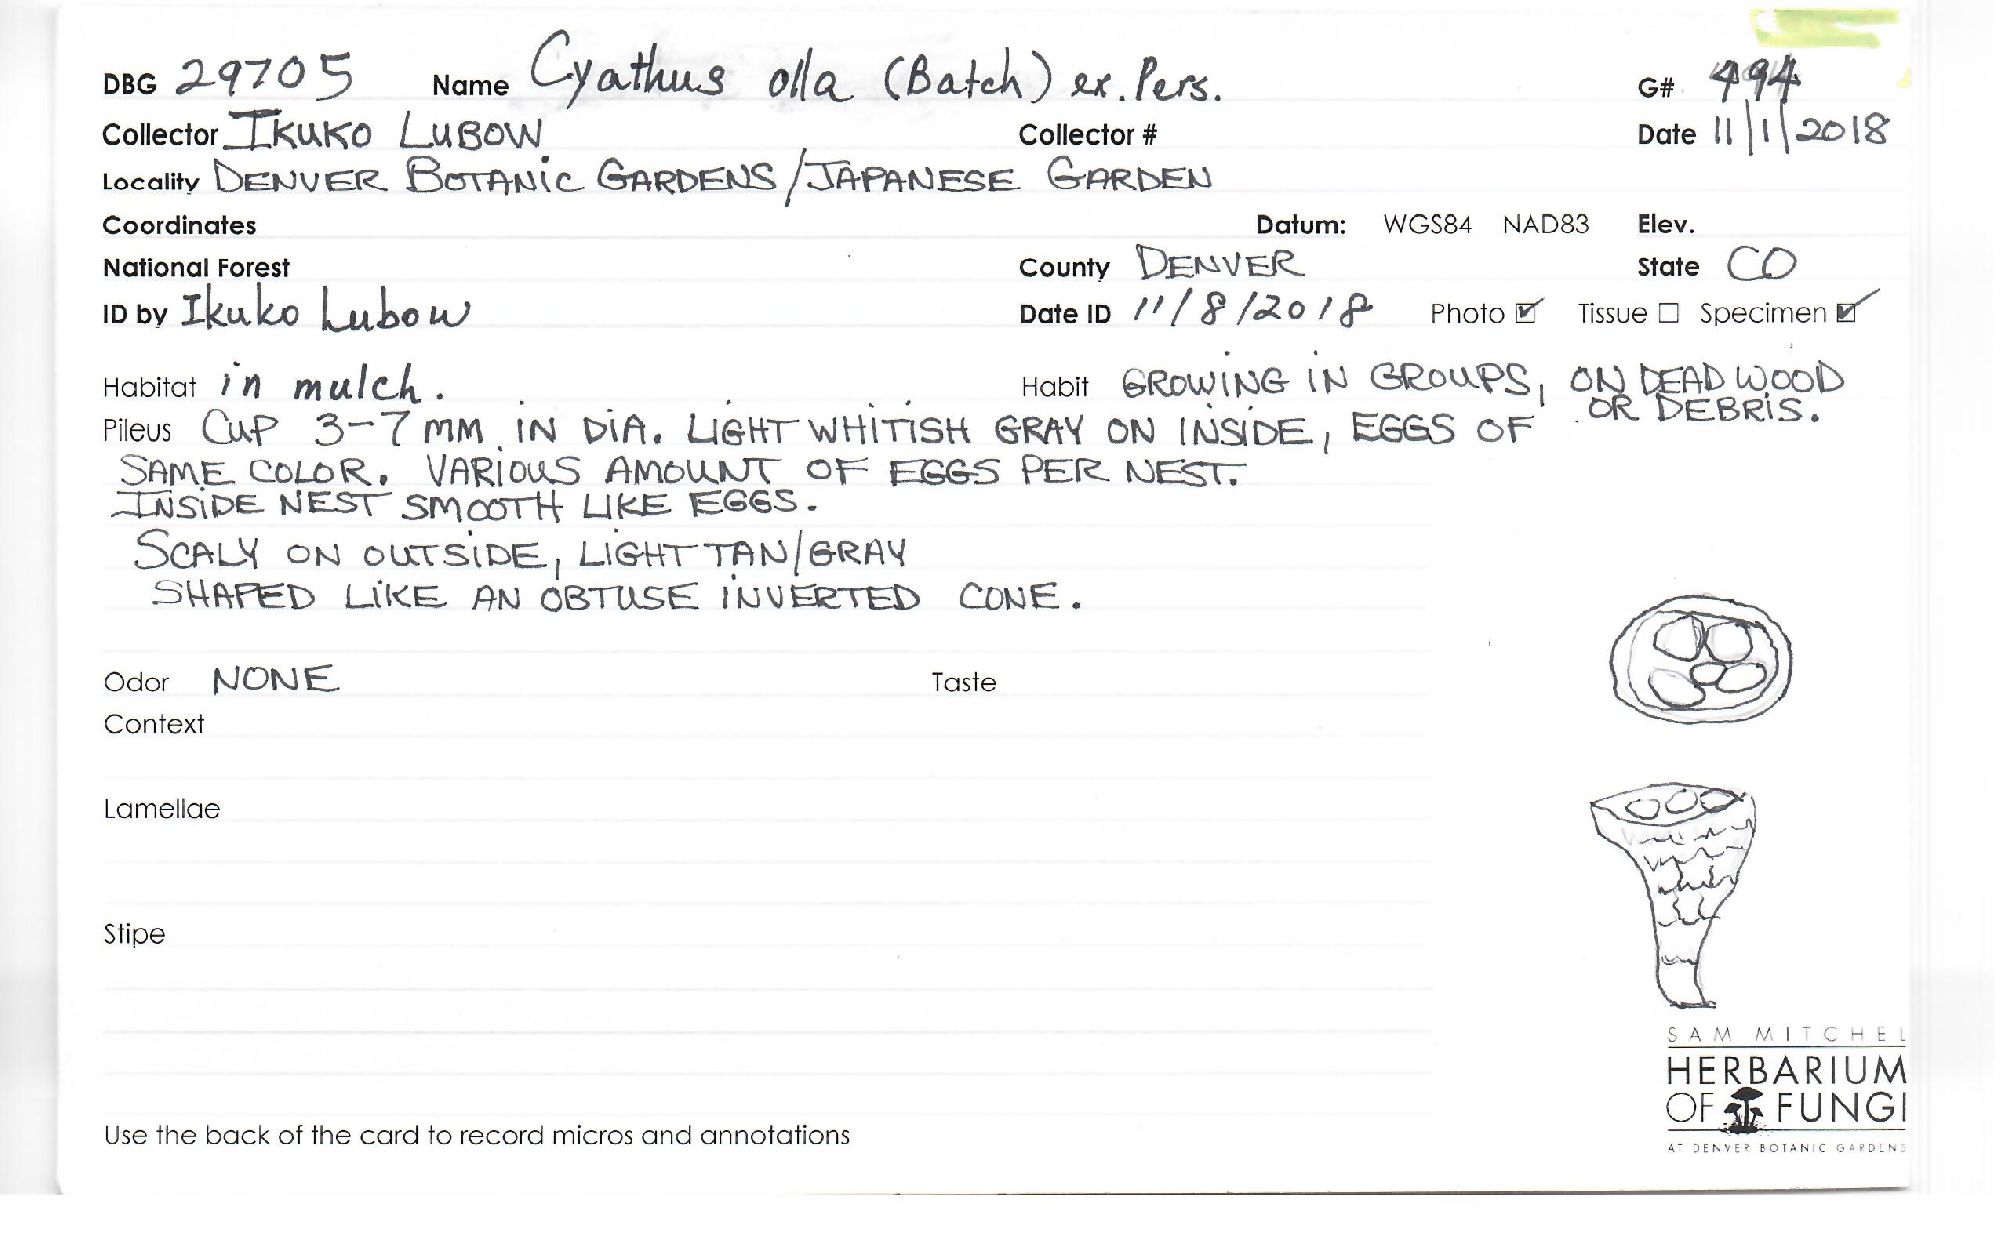 DBG 29705 Name Cyathus olla (Batch) ex. Pers. G# 494
Collector IKUKO LUBOW Collector # Date 11/1/2018
Locality DENVER BOTANIC GARDENS/JAPANESE GARDEN
Coordinates Datum: WGS84 NAD83 Elev.
National Forest County DENVER State CO
ID by Ikuko Lubow Date ID 11/8/2018 Photo Tissue Specimen
Habitat in mulch. Habit GROWING IN GROUPS, ON DEAD WOOD
OR DEBRIS.
Pileus CUP 3-7 MM IN DIA. LIGHT WHITISH GRAY ON INSIDE, EGGS OF
SAME COLOR. VARIOUS AMOUNT OF EGGS PER NEST.
INSIDE NEST SMOOTH LIKE EGGS.
SCALY ON OUTSIDE, LIGHT TAN/GRAY
SHAPED LIKE AN OBTUSE INVERTED CONE.
Odor NONE Taste
Context
Lamellae
Stipe
SAM MITCHEL
HERBARIUM
OF FUNGI
AT DENVER BOTANIC GARDENS
Use the back of the card to record micros and annotations